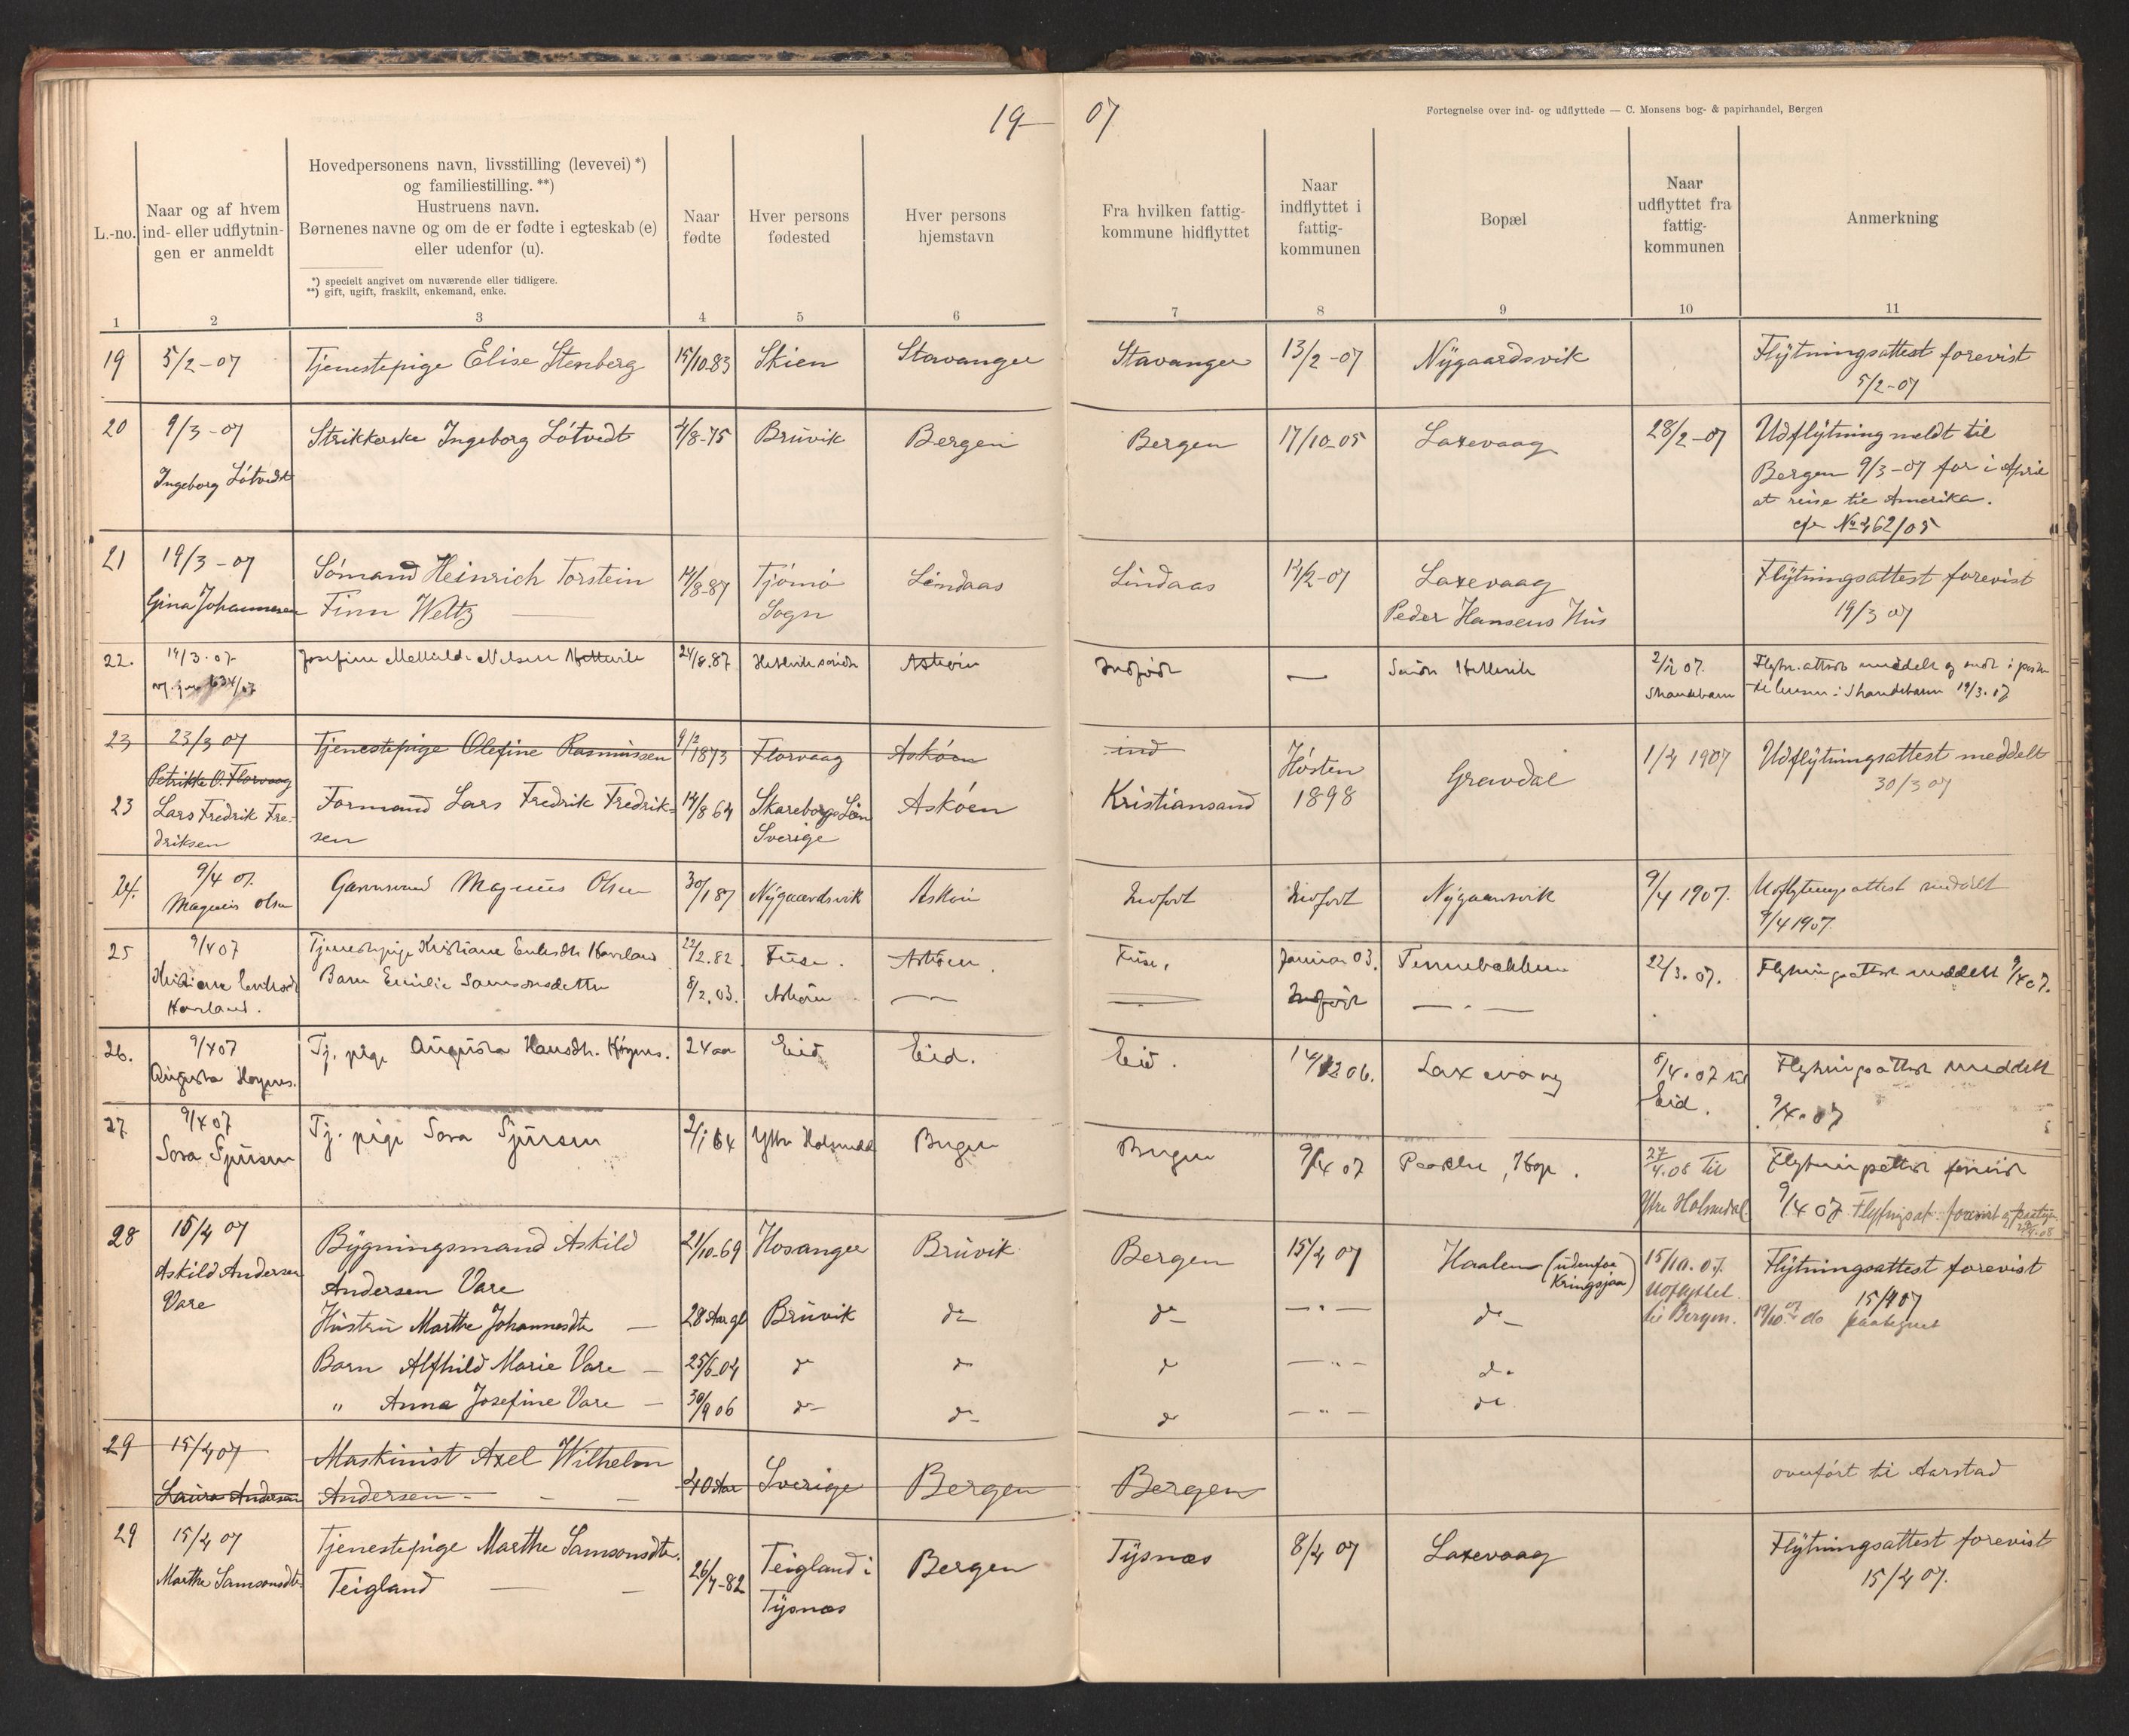 19 07
Fortegnelse over ind- og udflyttede — C. Monsens bog- & papirhandel, Bergen
L.-no.
Naar og af hvem
ind- eller udflytnin-
gen er anmeldt
Hovedpersonens navn, livsstilling (levevei) *)
og familiestilling. **)
Hustruens navn.
Børnenes navne og om de er fødte i egteskab (e)
eller udenfor (u).
*) specielt angivet om nuværende eller tidligere.
**) gift, ugift, fraskilt, enkemand, enke.
Naar
fødte
Hver persons
fødested
Hver persons
hjemstavn
Fra hvilken fattig-
kommune hidflyttet
Naar
indflyttet i
fattig-
kommunen
Bopæl
Naar
udflyttet fra
fattig-
kommunen
Anmerkning
1 2 3 4 5 6 7 8 9 10 11
19 5/2-07 Tjenestepige Elise Stenberg 15/10-83 Skien Stavanger Stavanger 13/2-07 Nygaardsvik Flytningsattest forevist
5/2-07
20 9/3-07 Strikkerske Ingeborg Lótvedt 4/8-75 Bruvik Bergen Bergen 17/10-05 Laxevaag 28/2-07 Udflytning meldt til
Ingeborg Lótvedt Bergen 9/3-07 for i April
at reise til Amerika.
cfr No 462/05
21 19/3-07 Sómand Heinrich Torstein 14/8-87 Tjómó Lindaas Lindaas 14/2-07 Laxevaag Flytningsattest forevist
Gina Johannesen Finn Weltz Sogn Peder Hansens Hus 19/3 07
22. 19/3.07 Josefine Nilsen 24/8.87 Askøen Indfødt — Søndre 2/2 07.
Strandebarm Strandebarm 19/3.07
23 23/3 07 Tjenestepige Olefine Rasmussen 9/2 1873 Florvaag Askóen ind Hósten 1/4 1907 Udflytningsattest meddelt
Petrikke O. Florvaag 30/3 07
23 Lars Fredrik Fre- Formand Lars Fredrik Fredrik- 14/8 64 Skareborgs Län Askóen Kristiansand 1898 Gravdal
driksen sen Sverige
24. 9/4 07. Magnus Olsen 30/1 87 Nygaardsvik Askøen Indfødt Indfødt Nygaardsvik 9/4 1907. Udflytningsattest meddelt
Magnus Olsen 9/4 1907.
25 9/4 07 Tjenestepige Kristiane Haveland 22/2.82. Fuse. Askøen. Fuse. Januar 03. Tennebekken 22/3.07. Flytningsattest meddelt 9/4 07.
Kristiane Barn Emilie Samsonsdatter 8/2.03. Askøen — Indfødt —
Havland.
26. 9/4 07 Tj. pige Augusta Hansdtr. 24 aar Eid Eid. Eid. 14/12 06. Laxevaag 8/4.07 til Flytningsattest meddelt
Augusta Eid. 9/4.07
27. 9/4 07 Tj. pige Sjursen 2/1 64 Ytre Holmedal Bergen Bergen 9/4 07 27/4.08 Til Flytningsattest forevist
Sjursen Ytre Holmedal 9/4 07 Flytningsat. forevist
28 15/4 07 Bygningsmand Askild 21/10-69 Hosanger Bruvik Bergen 15/4 07 Haalen (udenfor 15/10.07. Flytningsattest forevist
Askild Andersen Andersen Vare Kringsjaa) Udflyttet 15/4 07
Vare Hustru Marthe Johannesdtr — 28 Aar gl Bruvik do do — " — do til Bergen. 19/10 07 do paategnet
Barn Alfhild Marie Vare — 25/6-04 do do do — " — do
" Anna Josefine Vare — 30/9 06 do do do — " — do
29 15/4 07 Maskinist Axel Wilhelm overfórt til Aarstad
Laura Andersen Andersen — 40 Aar Sverige Bergen Bergen
29 15/4 07 Tjenestepige Marthe Samsonsdtr. 26/7-82 Teigland i Bergen Tysnæs 8/4 07 Laxevaag Flytningsattest forevist
Marthe Samsonsdtr Teigland — Tysnæs 15/4 07.